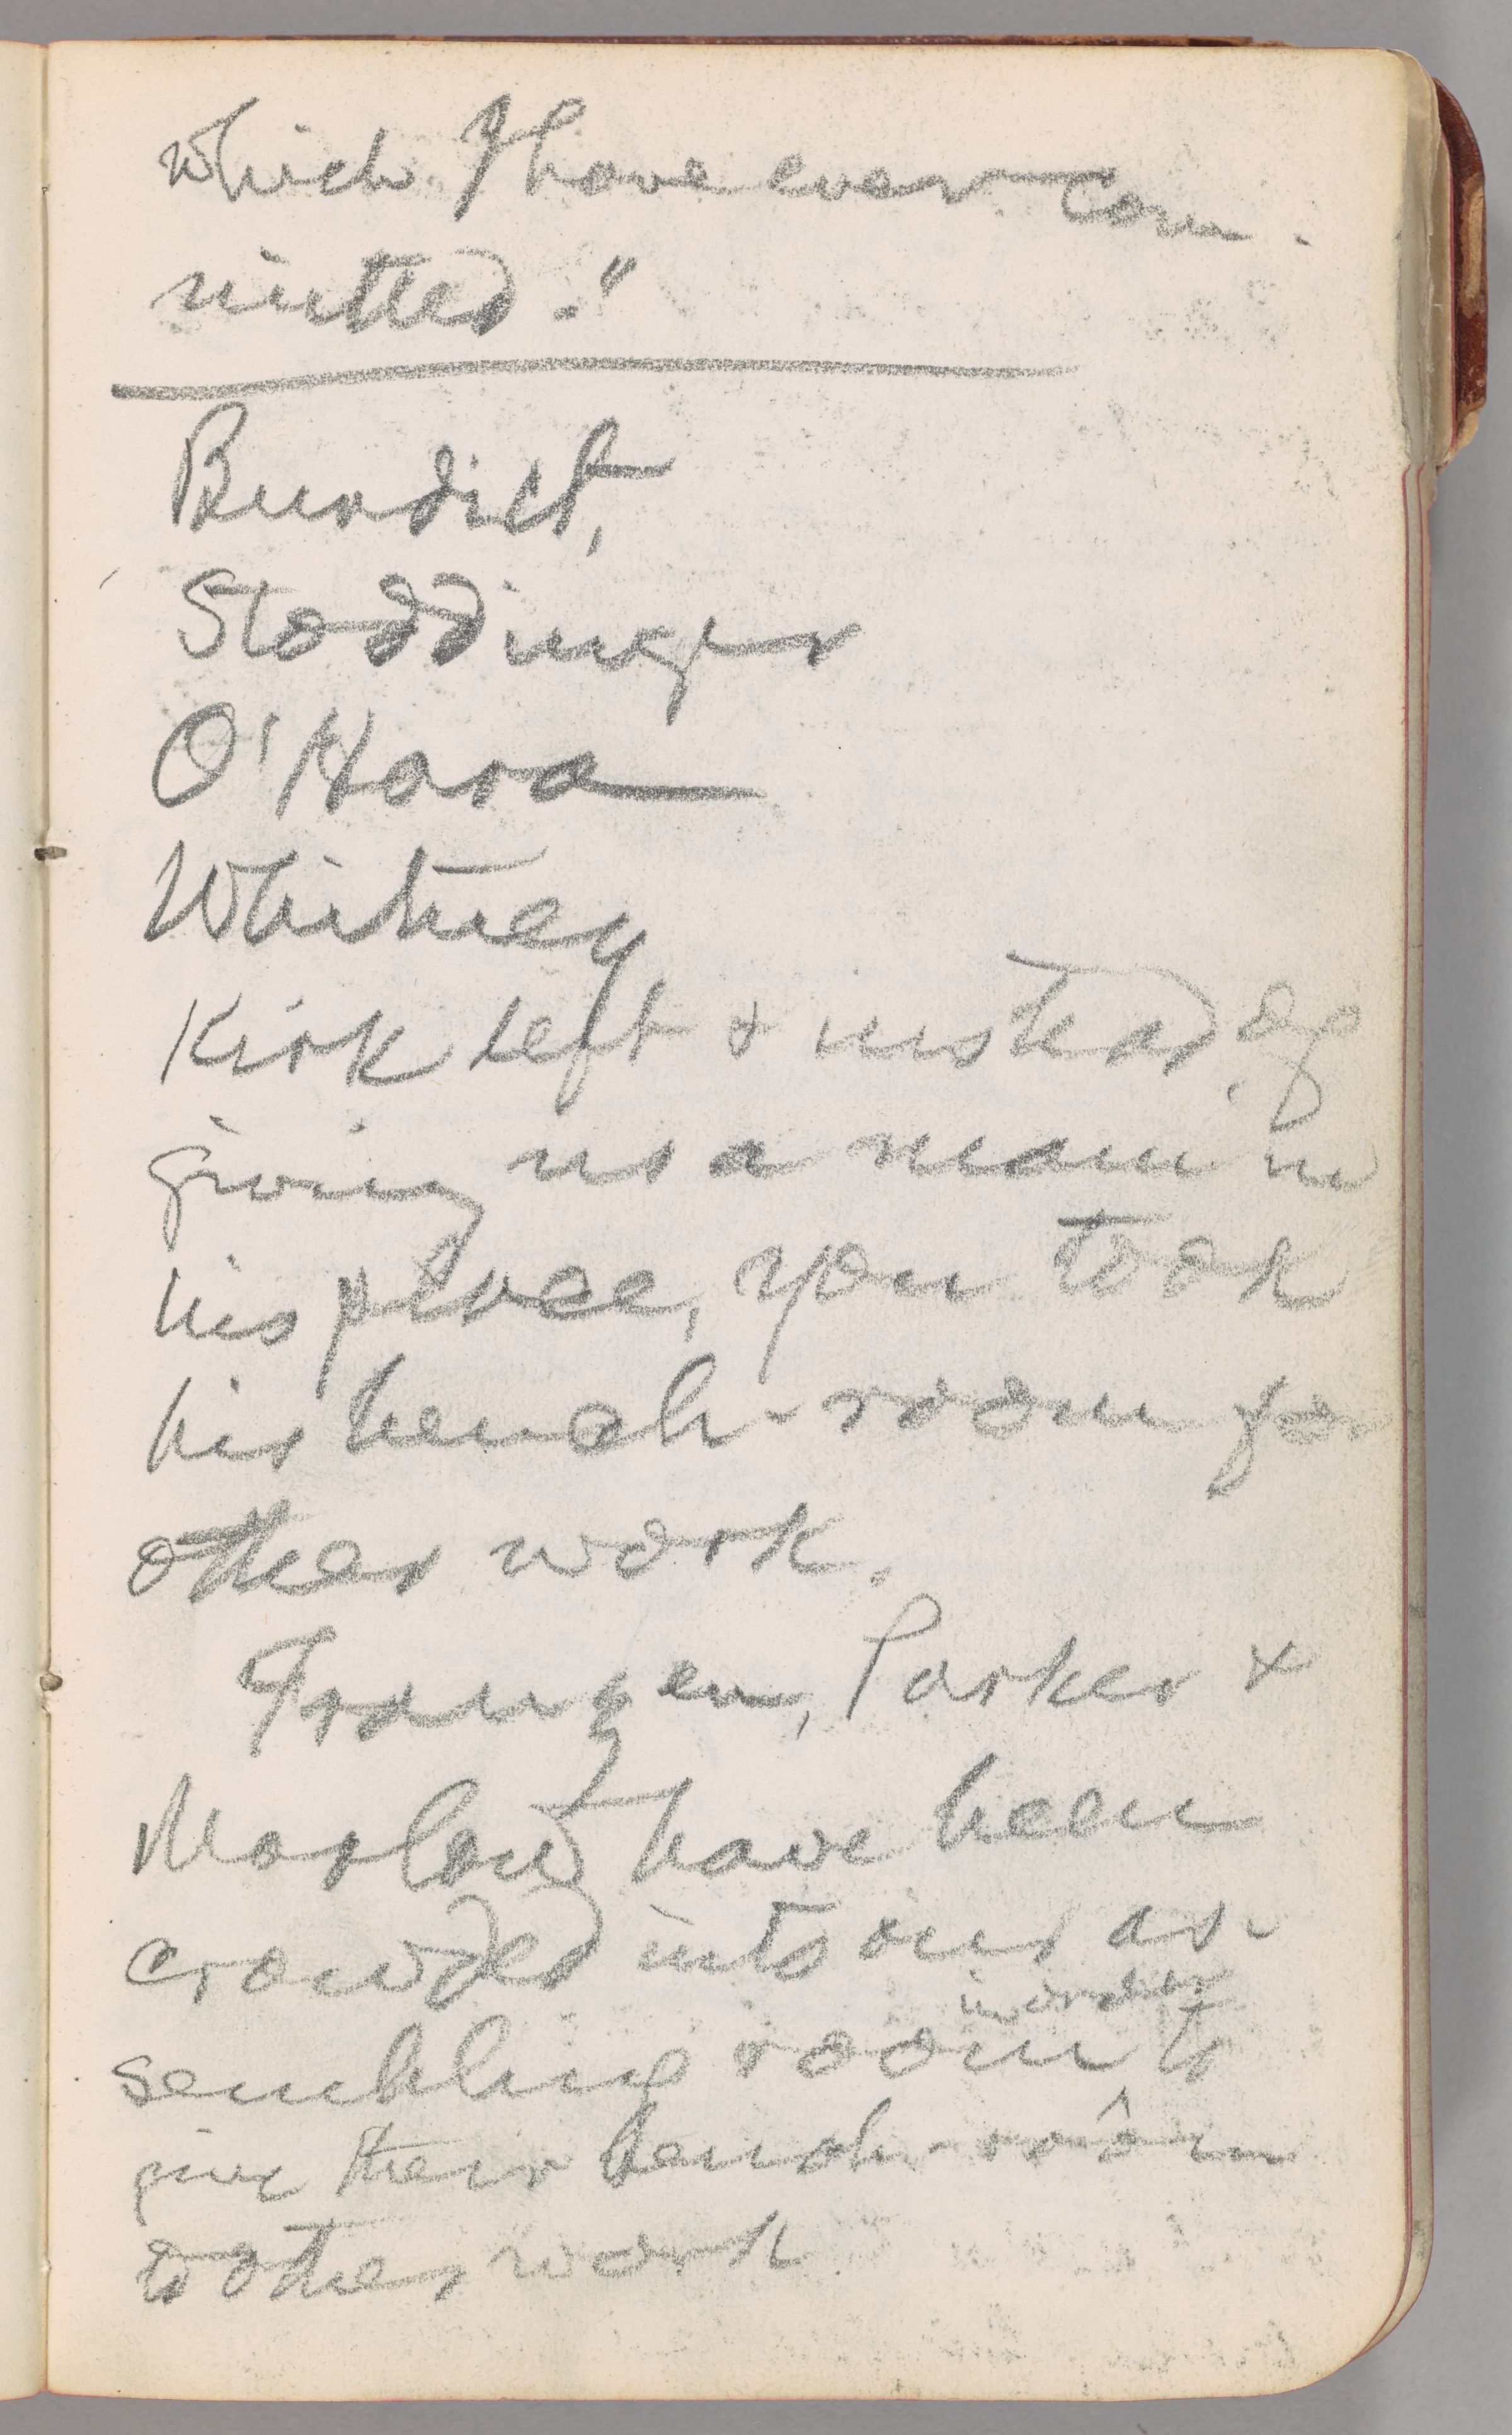 which I have ever com-
mitted."
Burdict,
Stoddinger
O'Hara
Whitney
Kirk left & instead of
giving us a man in
his place, you took
his bench-room for
other work.
Franzen, Parker &
Marland have been
crowded into our as-
in order
sembling room to
give their bench-room
to other work